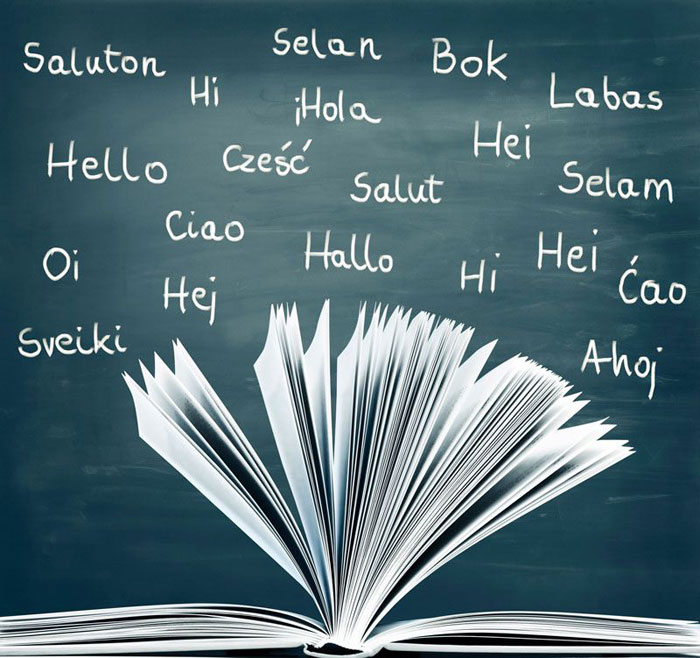 Saluton
Selan
Bok
Hi
¡Hola
Labas
Hello
Cześć
Hei
Salut
Selam
Ciao
Oi
Hallo
Hei
Hej
Hi
Ćao
Sveiki
Ahoj